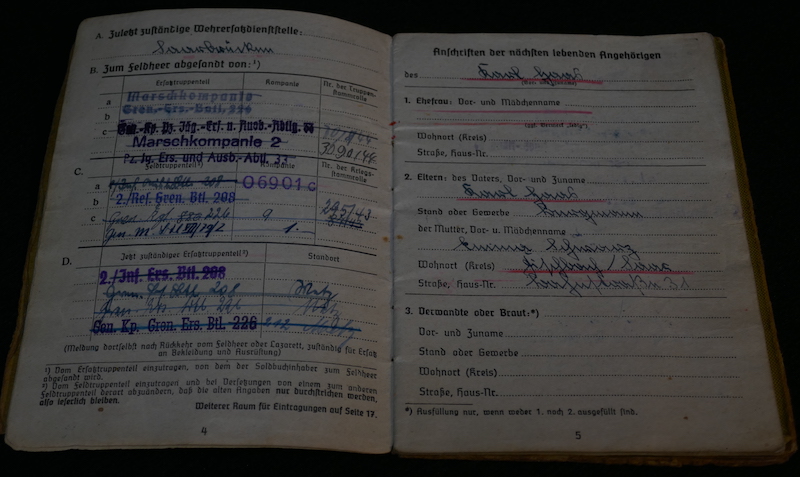 A. Zuletzt zuständige Wehrersatzdienststelle:
Saarbrücken
B. Zum Feldheer abgesandt von:¹)
Ersatztruppenteil Kompanie Nr. der Truppenstammrolle
a Marschkompanie
b Gren.-Ers.-Batl. 226
c Gen.-Kp. Pz. Jäg.-Ers. u. Ausb.-Abtlg. 33
Marschkompanie 2
Pz. Jg. Ers. und Ausb.-Abtl. 33
C.
Feldtruppenteil²) Kompanie Nr. der Kriegsstammrolle
a 06901 c
b 2./Res. Gren. Btl. 208 245/43
c
D. Jetzt zuständiger Ersatztruppenteil²) Standort
2./Inf. Ers. Btl. 208
Metz
Gen. Kp. Gren. Ers. Btl. 226
(Meldung dortselbst nach Rückkehr vom Feldheer oder Lazarett, zuständig für Ersatz
an Bekleidung und Ausrüstung)
¹) Vom Ersatztruppenteil einzutragen, von dem der Soldbuchinhaber zum Feldheer
abgesandt wird.
²) Vom Feldtruppenteil einzutragen und bei Versetzungen von einem zum anderen
Feldtruppenteil derart abzuändern, daß die alten Angaben nur durchstrichen werden,
also leserlich bleiben.
Weiterer Raum für Eintragungen auf Seite 17.
4
Anschriften der nächsten lebenden Angehörigen
des Karl Haas
1. Ehefrau: Vor- und Mädchenname
Wohnort (Kreis)
Straße, Haus-Nr.
2. Eltern: des Vaters, Vor- und Zuname
Karl Haas
Stand oder Gewerbe
der Mutter, Vor- u. Mädchenname
Emma Schwarz
Wohnort (Kreis)
Straße, Haus-Nr.
3. Verwandte oder Braut:*)
Vor- und Zuname
Stand oder Gewerbe
Wohnort (Kreis)
Straße, Haus-Nr.
*) Ausfüllung nur, wenn weder 1. noch 2. ausgefüllt sind.
5